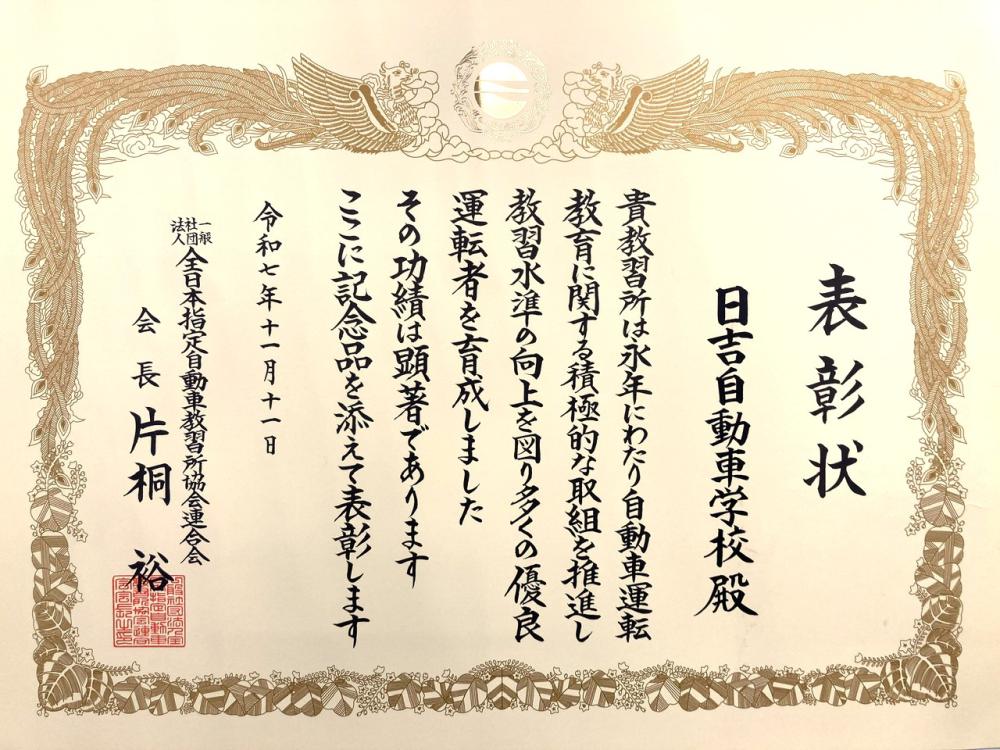 表彰状
日吉自動車学校殿
貴教習所は永年にわたり自動車運転
教育に関する積極的な取組を推進し
教習水準の向上を図り多くの優良
運転者を育成しました
その功績は顕著であります
ここに記念品を添えて表彰します
令和七年十一月十一日
一般社団法人全日本指定自動車教習所協会連合会
会長片桐裕